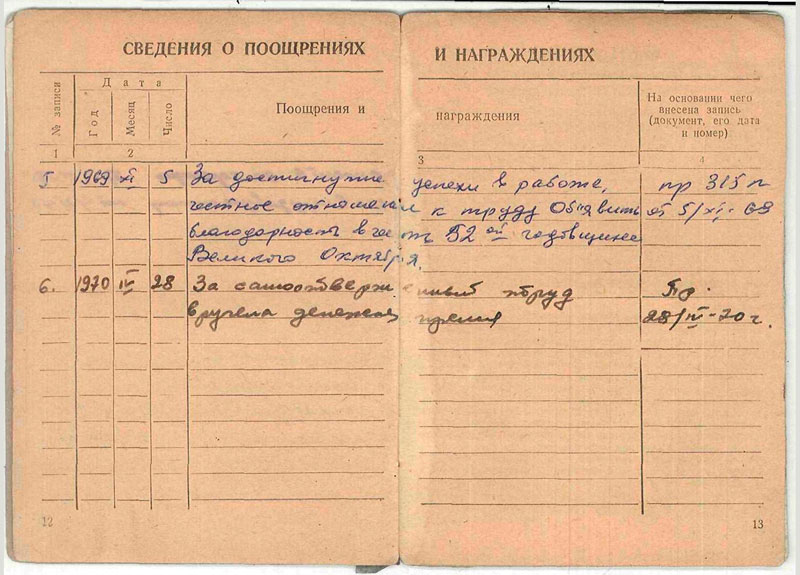 СВЕДЕНИЯ О ПООЩРЕНИЯХ И НАГРАЖДЕНИЯХ
№ записи
Дата
Год
Месяц
Число
Поощрения и награждения
На основании чего
внесена запись
(документ, его дата
и номер)
1 2 3 4
5 1969 XI 5 За достигнутые успехи в работе, пр 315 п
честное отношение к труду Объявить от 5/XI-69
благодарность в честь 52 ой годовщины
Великого Октября.
6. 1970 IV 28 За самоотверженный труд Пр.
вручена денежная премия 28/IV-70 г.
12
13